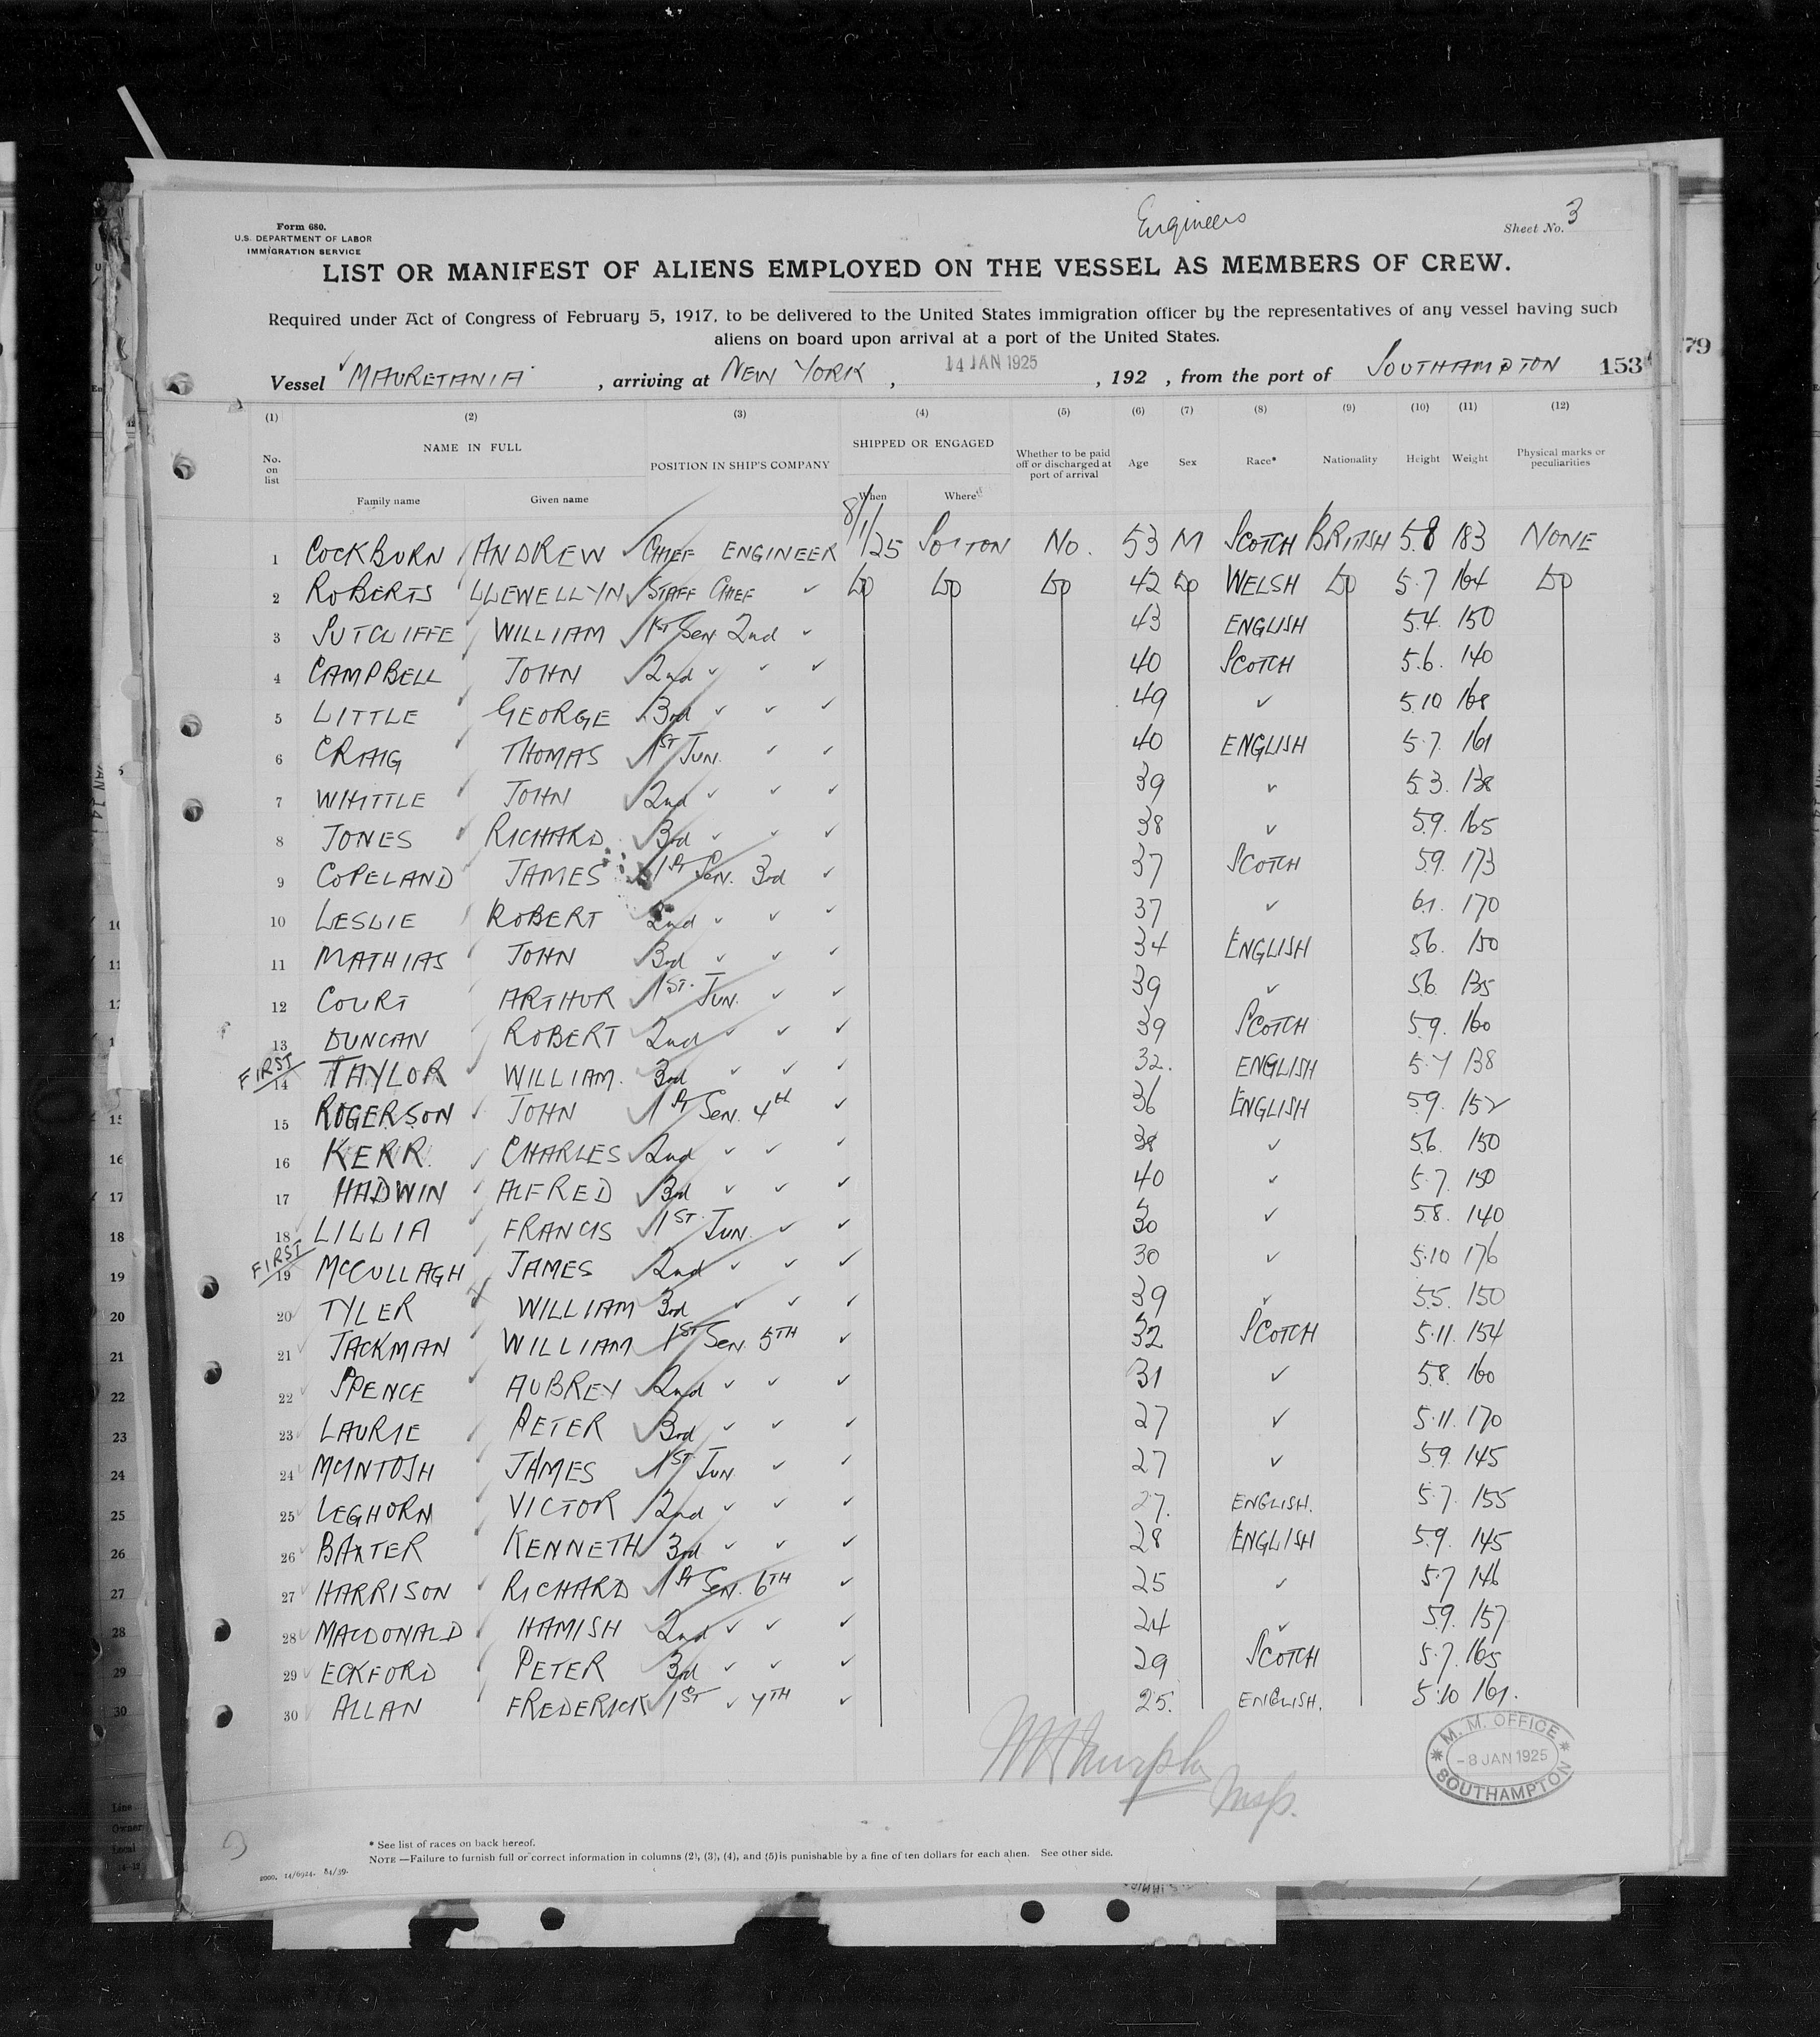 Engineers
Form 680.
U.S. DEPARTMENT OF LABOR
IMMIGRATION SERVICE
Sheet No. 3
LIST OR MANIFEST OF ALIENS EMPLOYED ON THE VESSEL AS MEMBERS OF CREW.
Required under Act of Congress of February 5, 1917, to be delivered to the United States immigration officer by the representatives of any vessel having such
aliens on board upon arrival at a port of the United States.
Vessel MAURETANIA, arriving at NEW YORK, 14 JAN 1925, 192 , from the port of SOUTHAMPTON 153 79
(1) (2) (3) (4) (5) (6) (7) (8) (9) (10) (11) (12)
No. on list NAME IN FULL Family name Given name POSITION IN SHIP'S COMPANY SHIPPED OR ENGAGED When Where Whether to be paid off or discharged at port of arrival Age Sex Race* Nationality Height Weight Physical marks or peculiarities
1 COCKBURN ANDREW ✓ CHIEF ENGINEER 8/1/25 SO'TON No. 53 M SCOTCH BRITISH 5.8 183 NONE
2 ROBERTS LLEWELLYN ✓ STAFF CHIEF ✓ DO DO DO 42 DO WELSH DO 5.7 164 DO
3 SUTCLIFFE WILLIAM ✓ 1ST Sen 2nd ✓ 43 ENGLISH 5.4. 150
4 CAMPBELL JOHN ✓ 2nd ✓ ✓ ✓ 40 SCOTCH 5.6. 140
5 LITTLE GEORGE ✓ 3rd ✓ ✓ ✓ 49 ✓ 5.10 168
6 CRAIG THOMAS ✓ 1ST Jun. ✓ ✓ 40 ENGLISH 5.7. 161
7 WHITTLE JOHN ✓ 2nd ✓ ✓ ✓ 39 ✓ 5.3. 138
8 JONES RICHARD ✓ 3rd ✓ ✓ ✓ 38 ✓ 5.9. 165
9 COPELAND JAMES 1st Sen. 3rd ✓ 37 SCOTCH 5.9. 173
10 LESLIE ROBERT 2nd ✓ ✓ ✓ 37 ✓ 6.1. 170
11 MATHIAS JOHN ✓ 3rd ✓ ✓ ✓ 34 ENGLISH 5.6. 150
12 COURT ARTHUR ✓ 1ST. Jun. ✓ ✓ 39 ✓ 5.6. 135
13 DUNCAN ROBERT ✓ 2nd ✓ ✓ ✓ 39 SCOTCH 5.9. 160
FIRST
14 TAYLOR WILLIAM. ✓ 3rd ✓ ✓ ✓ 32. ENGLISH 5.7 138
15 ROGERSON JOHN ✓ 1st Sen. 4th ✓ 36 ENGLISH 5.9. 152
16 KERR. CHARLES ✓ 2nd ✓ ✓ ✓ 38 ✓ 5.6. 150
17 HADWIN ALFRED ✓ 3rd ✓ ✓ ✓ 40 ✓ 5.7. 150
18 LILLIA FRANCIS ✓ 1ST. Jun. ✓ ✓ 30 ✓ 5.8. 140
FIRST
19 McCULLAGH JAMES ✓ 2nd ✓ ✓ ✓ 30 ✓ 5.10 176
20 TYLER WILLIAM 3rd ✓ ✓ ✓ 39 ✓ 5.5. 150
21 JACKMAN WILLIAM 1ST Sen. 5TH ✓ 32 SCOTCH 5.11. 154
22 SPENCE AUBREY ✓ 2nd ✓ ✓ ✓ 31 ✓ 5.8. 160
23 LAURIE PETER ✓ 3rd ✓ ✓ ✓ 27 ✓ 5.11. 170
24 McINTOSH JAMES ✓ 1ST. Jun. ✓ ✓ 27 ✓ 5.9. 145
25 LEGHORN VICTOR 2nd ✓ ✓ ✓ 27. ENGLISH. 5.7. 155
26 BAXTER KENNETH 3rd ✓ ✓ ✓ 28 ENGLISH 5.9. 145
27 HARRISON RICHARD ✓ 1st Sen. 6TH ✓ 25 ✓ 5.7 146
28 MACDONALD HAMISH 2nd ✓ ✓ ✓ 24 ✓ 5.9. 157
29 ECKFORD PETER 3rd ✓ ✓ ✓ 29 SCOTCH 5.7. 165
30 ALLAN FREDERICK ✓ 1ST ✓ 7TH ✓ 25. ENGLISH. 5.10 161.
M. M. OFFICE
-8 JAN 1925
SOUTHAMPTON
* See list of races on back hereof.
NOTE —Failure to furnish full or correct information in columns (2), (3), (4), and (5) is punishable by a fine of ten dollars for each alien. See other side.
2000. 14/6924. 84/39.